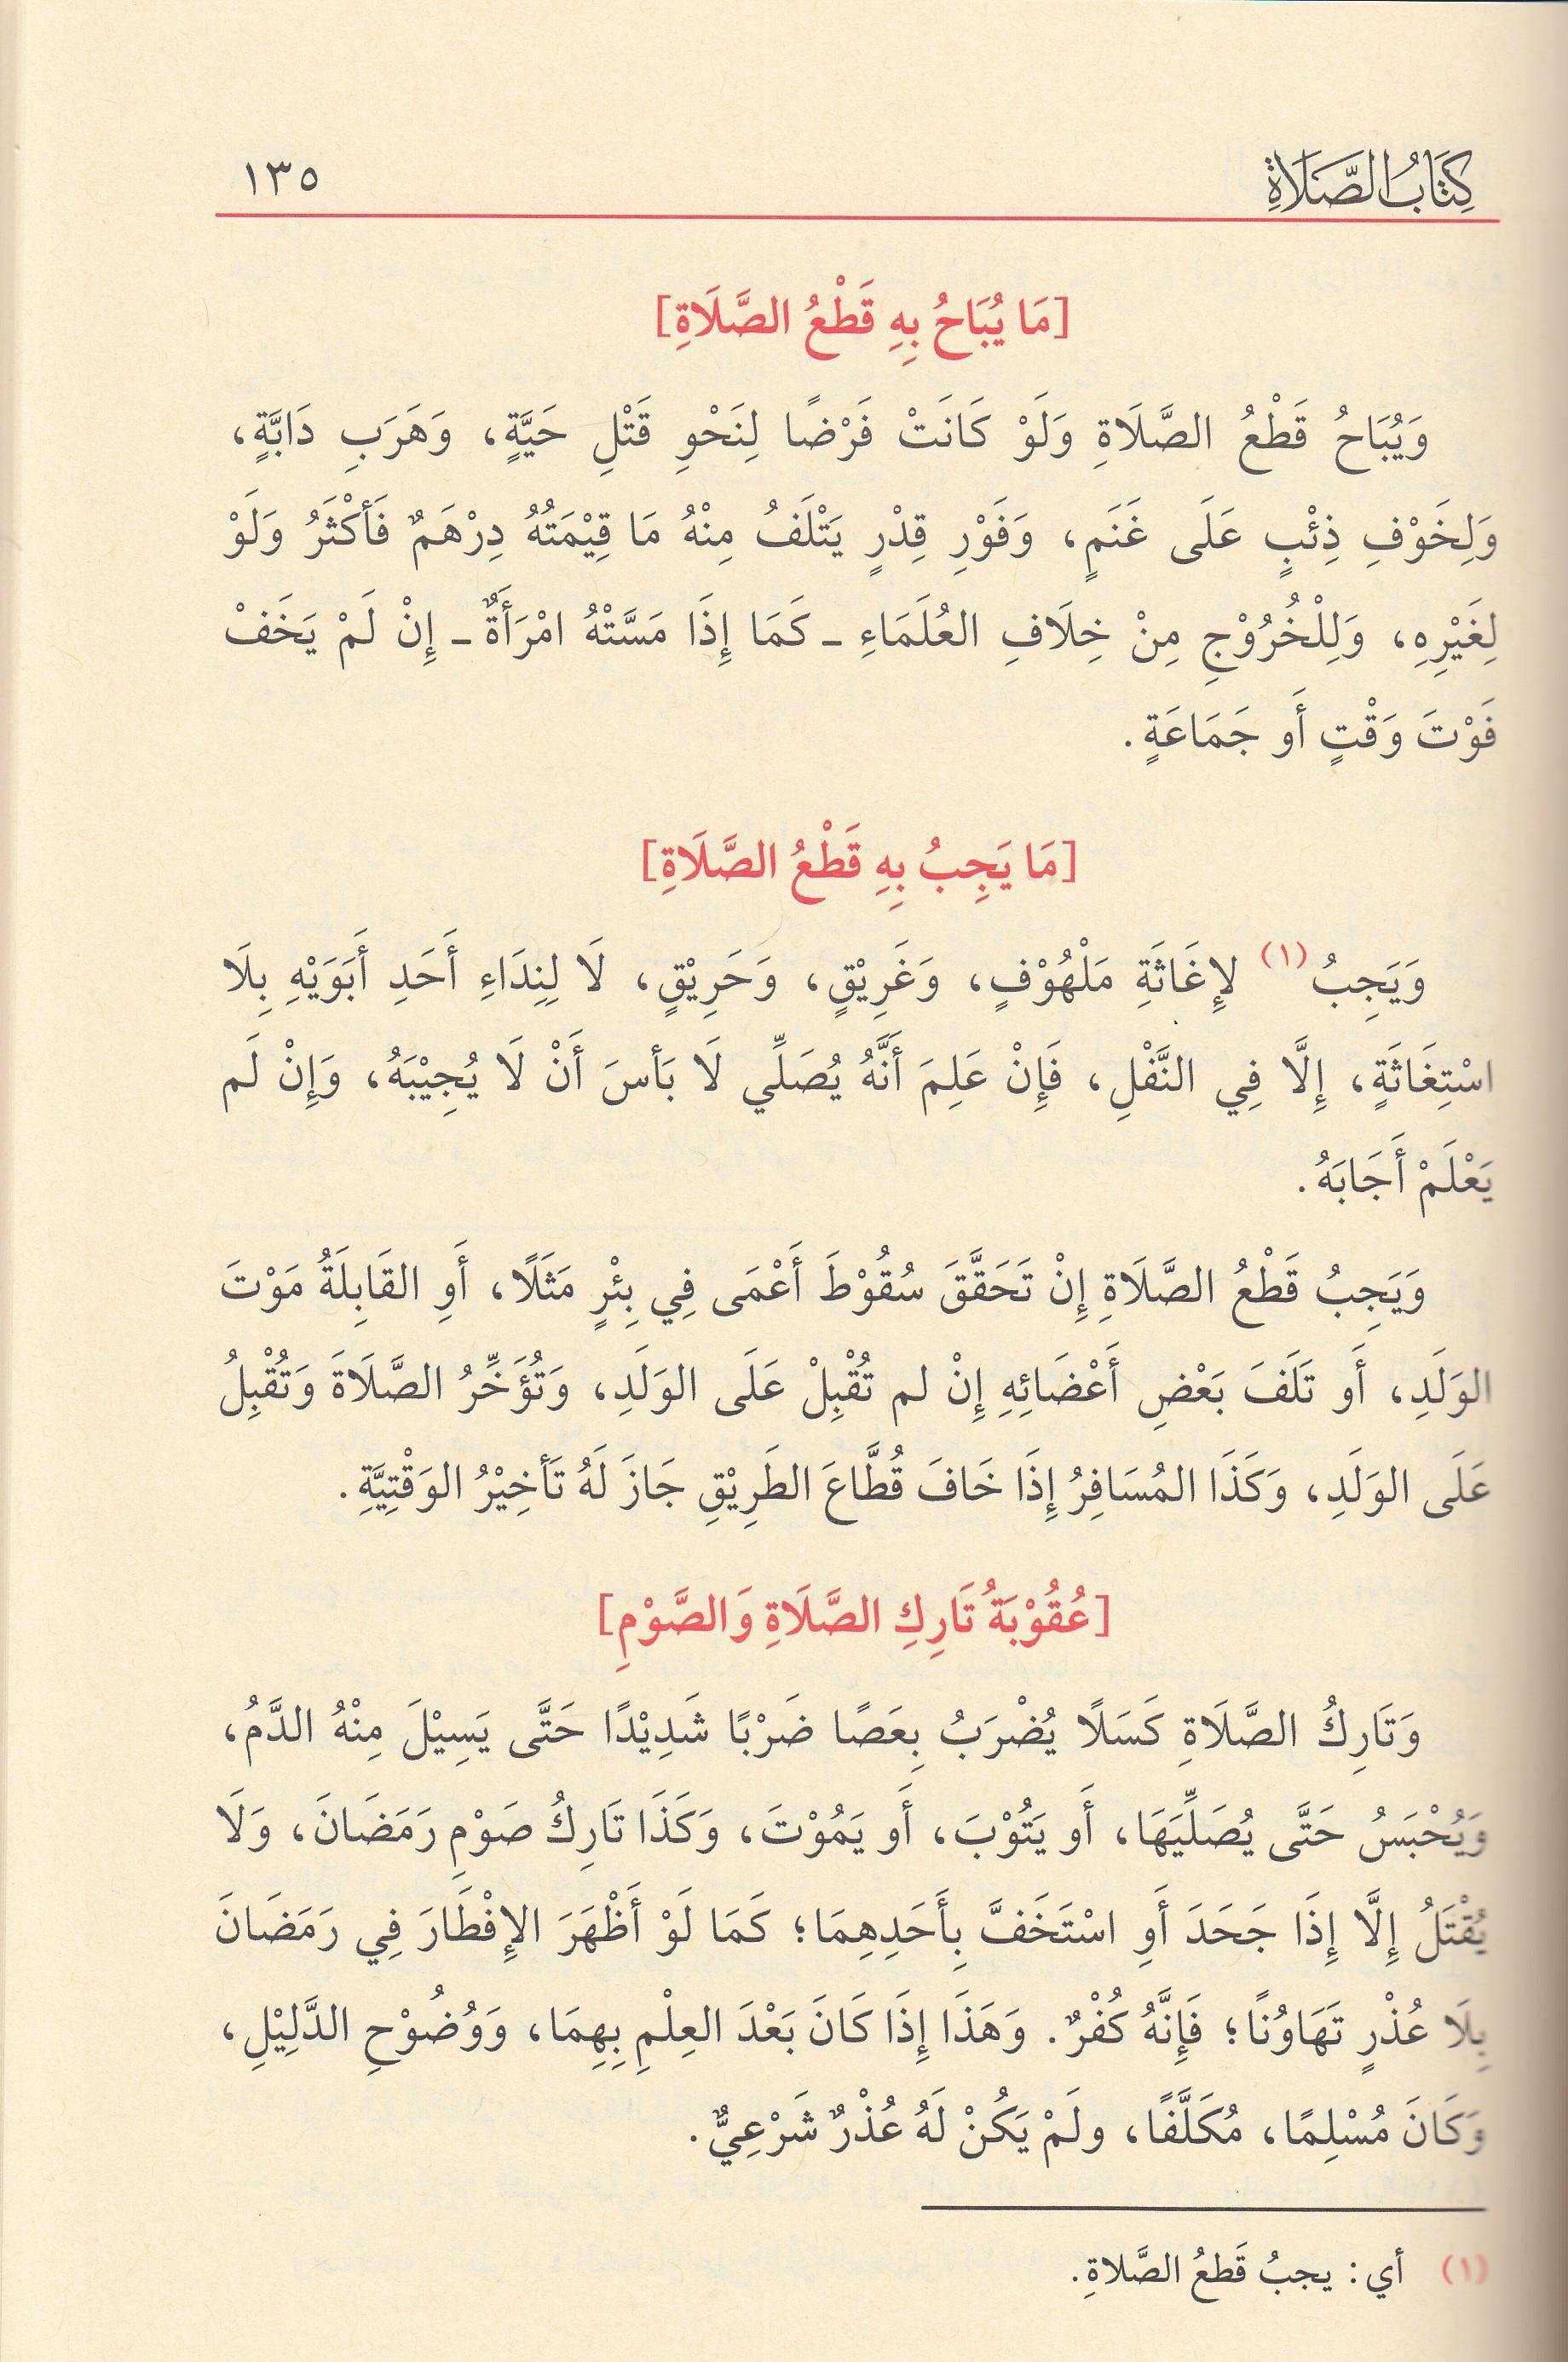 كِتَابُ الصَّلَاةِ
١٣٥
[مَا يُبَاحُ بِهِ قَطْعُ الصَّلَاةِ]
وَيُبَاحُ قَطْعُ الصَّلَاةِ وَلَوْ كَانَتْ فَرْضًا لِنَحْوِ قَتْلِ حَيَّةٍ، وَهَرَبِ دَابَّةٍ،
وَلِخَوْفِ ذِئْبٍ عَلَى غَنَمٍ، وَفَوْرِ قِدْرٍ يَتْلَفُ مِنْهُ مَا قِيْمَتُهُ دِرْهَمٌ فَأَكْثَرُ وَلَوْ
لِغَيْرِهِ، وَلِلْخُرُوْجِ مِنْ خِلَافِ العُلَمَاءِ ـ كَمَا إِذَا مَسَّتْهُ امْرَأَةٌ ـ إِنْ لَمْ يَخَفْ
فَوْتَ وَقْتٍ أَو جَمَاعَةٍ.
[مَا يَجِبُ بِهِ قَطْعُ الصَّلَاةِ]
وَيَجِبُ(١) لإِغَاثَةِ مَلْهُوْفٍ، وَغَرِيْقٍ، وَحَرِيْقٍ، لَا لِنِدَاءِ أَحَدِ أَبَوَيْهِ بِلَا
اسْتِغَاثَةٍ، إِلَّا فِي النَّفْلِ، فَإِنْ عَلِمَ أَنَّهُ يُصَلِّي لَا بَأسَ أَنْ لَا يُجِيْبَهُ، وَإِنْ لَم
يَعْلَمْ أَجَابَهُ.
وَيَجِبُ قَطْعُ الصَّلَاةِ إِنْ تَحَقَّقَ سُقُوْطَ أَعْمَى فِي بِئْرٍ مَثَلًا، أَوِ القَابِلَةُ مَوْتَ
الوَلَدِ، أَو تَلَفَ بَعْضِ أَعْضَائِهِ إِنْ لم تُقْبِلْ عَلَى الوَلَدِ، وَتُؤَخِّرُ الصَّلَاةَ وَتُقْبِلُ
عَلَى الوَلَدِ، وَكَذَا المُسَافِرُ إِذَا خَافَ قُطَّاعَ الطَرِيْقِ جَازَ لَهُ تَأخِيْرُ الوَقْتِيَّةِ.
[عُقُوْبَةُ تَارِكِ الصَّلَاةِ وَالصَّوْمِ]
وَتَارِكُ الصَّلَاةِ كَسَلًا يُضْرَبُ بِعَصًا ضَرْبًا شَدِيْدًا حَتَّى يَسِيْلَ مِنْهُ الدَّمُ،
وَيُحْبَسُ حَتَّى يُصَلِّيَهَا، أَو يَتُوْبَ، أَو يَمُوْتَ، وَكَذَا تَارِكُ صَوْمِ رَمَضَانَ، وَلَا
يُقْتَلُ إِلَّا إِذَا جَحَدَ أَوِ اسْتَخَفَّ بِأَحَدِهِمَا؛ كَمَا لَوْ أَظْهَرَ الإِفْطَارَ فِي رَمَضَانَ
بِلَا عُذْرٍ تَهَاوُنًا؛ فَإِنَّهُ كُفْرٌ. وَهَذَا إِذَا كَانَ بَعْدَ العِلْمِ بِهِمَا، وَوُضُوْحِ الدَّلِيْلِ،
وَكَانَ مُسْلِمًا، مُكَلَّفًا، ولَمْ يَكُنْ لَهُ عُذْرٌ شَرْعِيٌّ.
(١) أي: يجبُ قَطعُ الصَّلاةِ.